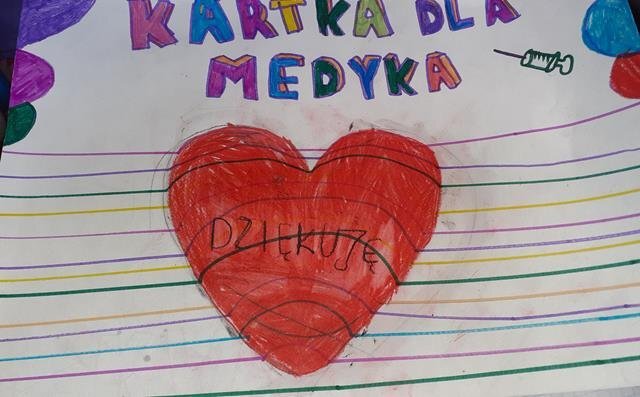 KARTKA DLA
MEDYKA
DZIĘKUJĘ